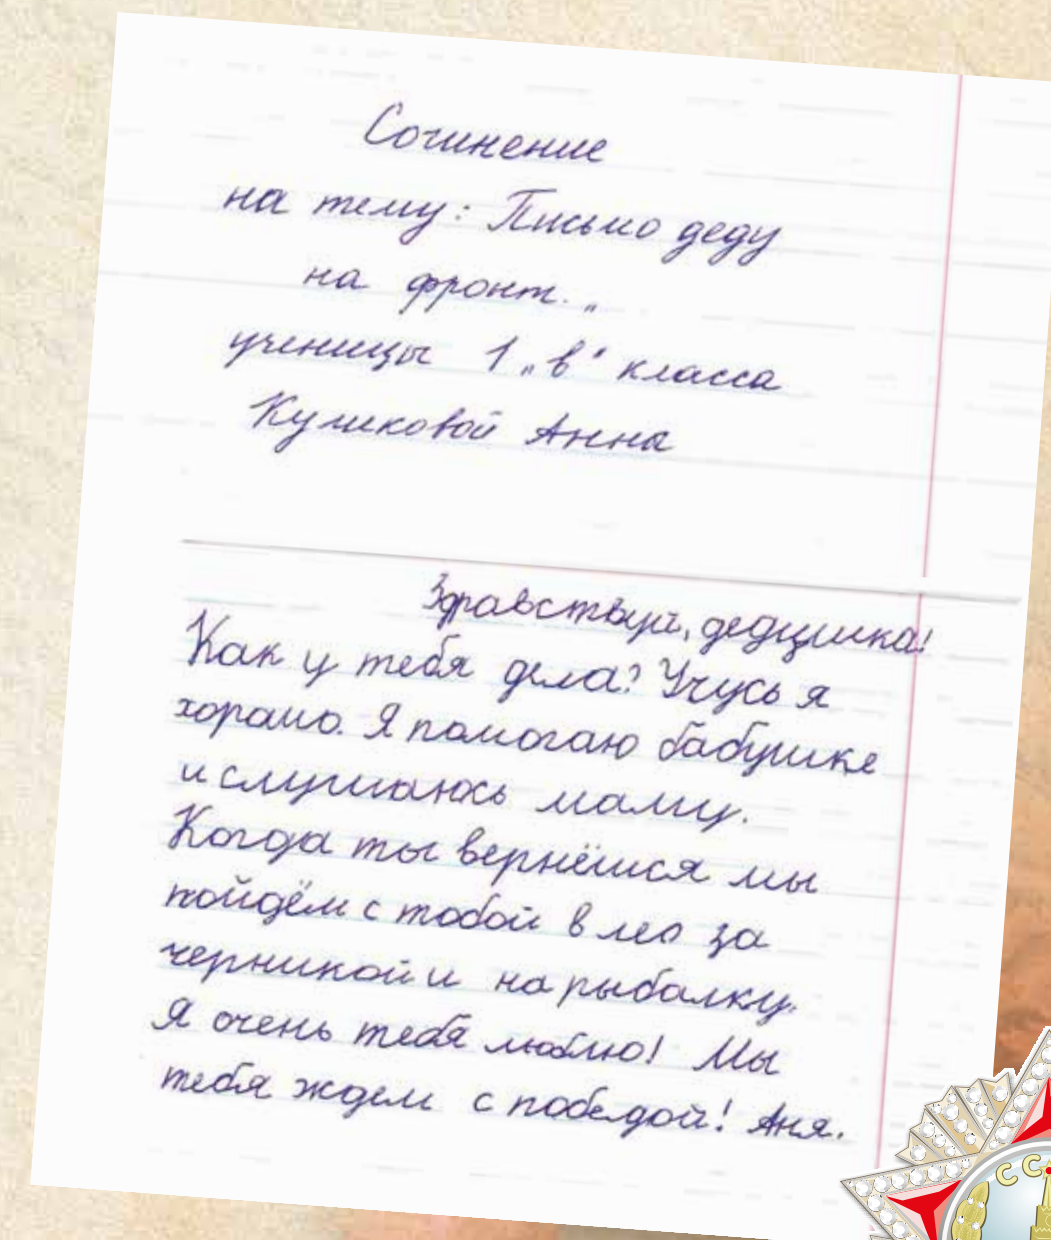 Сочинение
на тему: Письмо деду
на фронт. „
ученицы 1 „в“ класса
Куликовой Анны
Здравствуй, дедушка!
Как у тебя дела? Учусь я
хорошо. Я помогаю бабушке
и слушаюсь маму.
Когда ты вернёшся мы
пойдём с тобой в лес за
черникой и на рыбалку.
Я очень тебя люблю! Мы
тебя ждем с победой! Аня.
СС